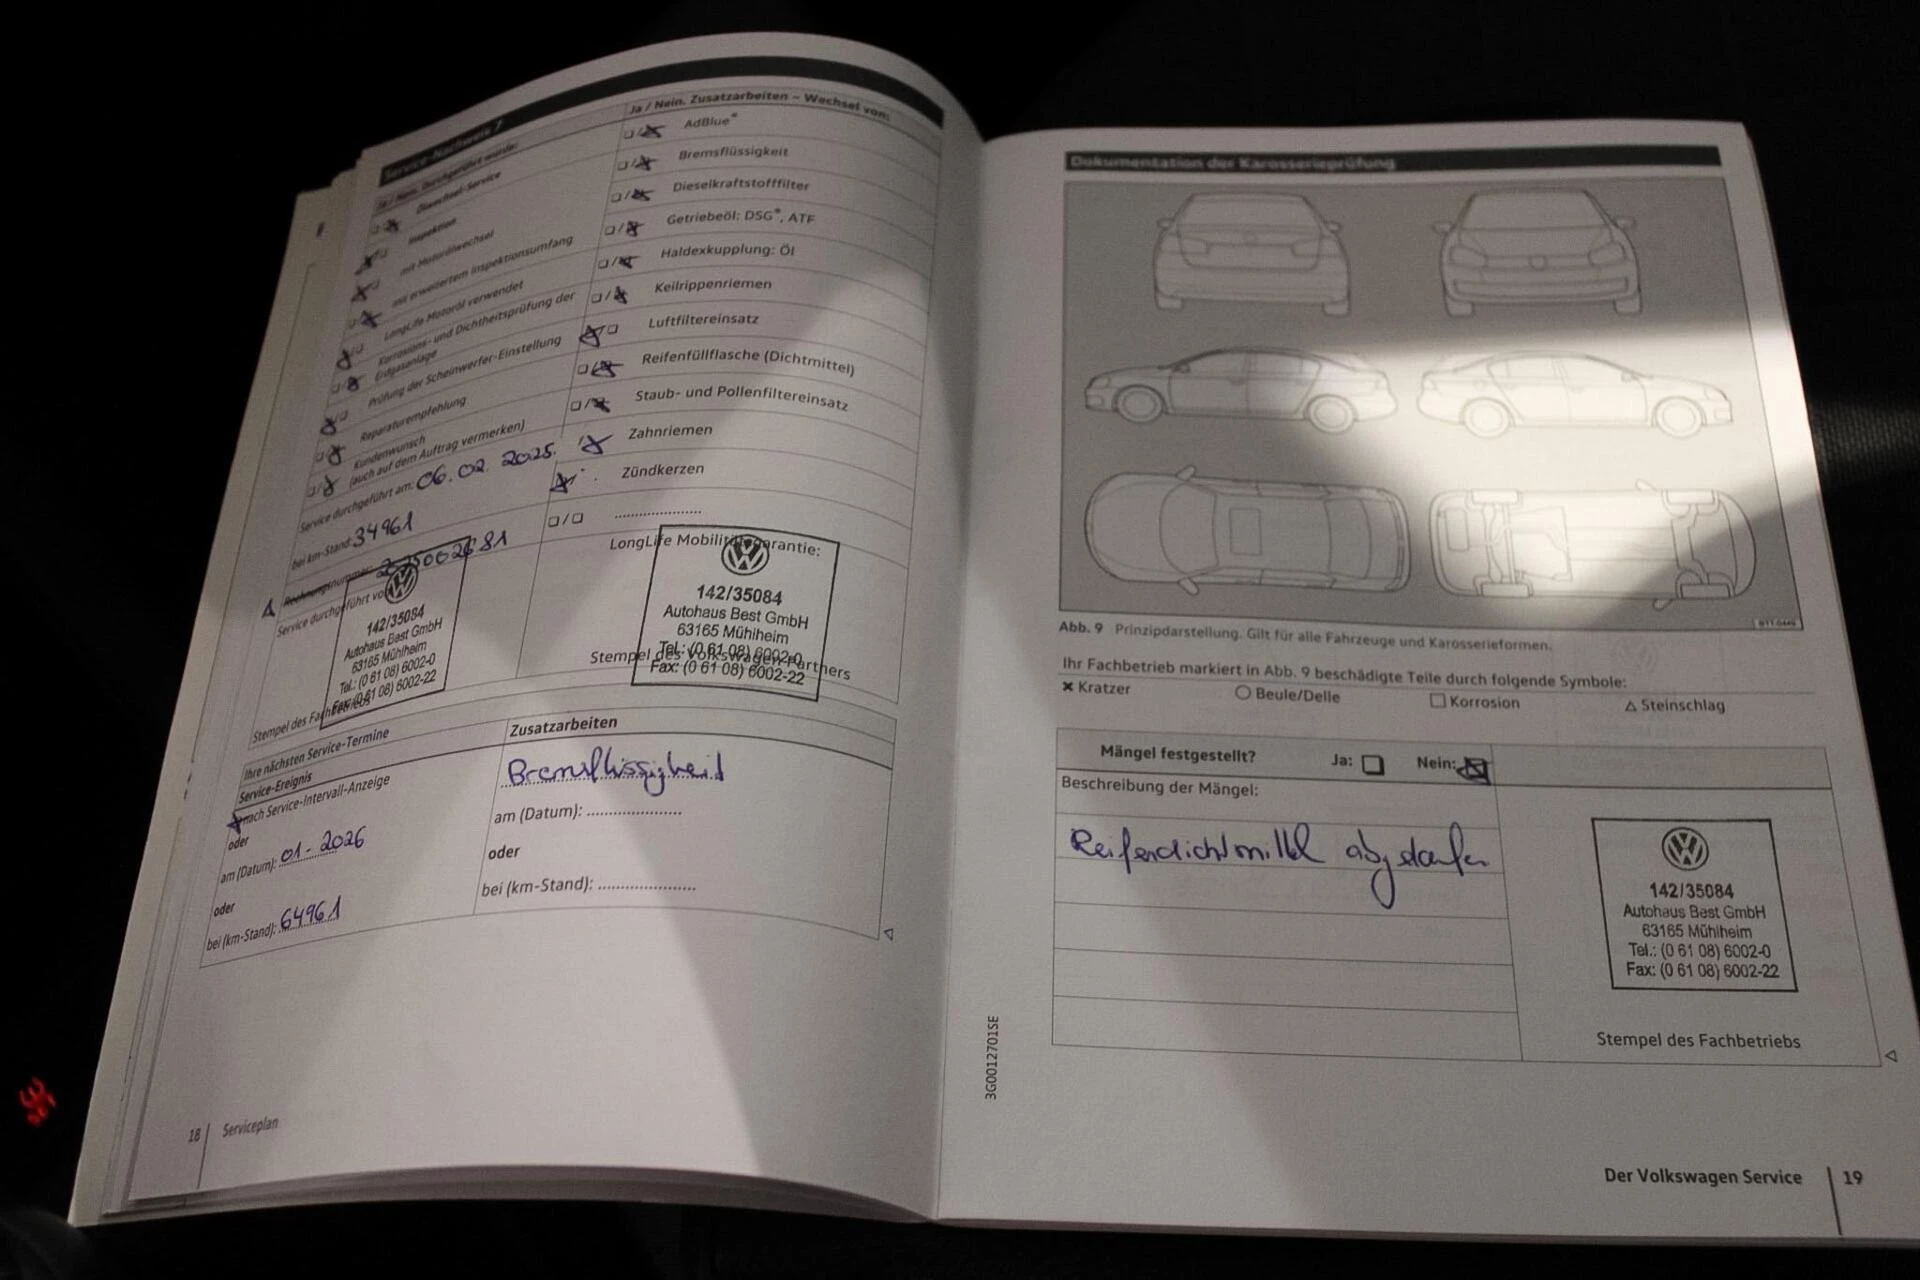 Service-Nachweis 7
Ja / Nein. Durchgeführt wurde:
Ölwechsel-Service
Inspektion
mit Motorölwechsel
mit erweitertem Inspektionsumfang
LongLife Motoröl verwendet
Korrosions- und Dichtheitsprüfung der
Erdgasanlage
Prüfung der Scheinwerfer-Einstellung
Reparaturempfehlung
Kundenwunsch
(auch auf dem Auftrag vermerken)
Service durchgeführt am: 06.02.2025.
bei km-Stand: 34961
Rechnungsnummer:
Service durchgeführt von
142/35084
Autohaus Best GmbH
63165 Mühlheim
Tel.: (0 61 08) 6002-0
Fax: (0 61 08) 6002-22
Stempel des Fachbetriebs
Ja / Nein. Zusatzarbeiten – Wechsel von:
AdBlue®
Bremsflüssigkeit
Dieselkraftstofffilter
Getriebeöl: DSG®, ATF
Haldexkupplung: Öl
Keilrippenriemen
Luftfiltereinsatz
Reifenfüllflasche (Dichtmittel)
Staub- und Pollenfiltereinsatz
Zahnriemen
Zündkerzen
LongLife Mobilitätsgarantie:
142/35084
Autohaus Best GmbH
63165 Mühlheim
Tel.: (0 61 08) 6002-0
Fax: (0 61 08) 6002-22
Stempel des Volkswagen Partners
Ihre nächsten Service-Termine
Service-Ereignis
nach Service-Intervall-Anzeige
oder
am (Datum): 01-2026
oder
bei (km-Stand): 64961
Zusatzarbeiten
Bremsflüssigkeit
am (Datum):
oder
bei (km-Stand):
18 | Serviceplan
Dokumentation der Karosserieprüfung
Abb. 9 Prinzipdarstellung. Gilt für alle Fahrzeuge und Karosserieformen.
Ihr Fachbetrieb markiert in Abb. 9 beschädigte Teile durch folgende Symbole:
× Kratzer ○ Beule/Delle □ Korrosion △ Steinschlag
Mängel festgestellt? Ja: Nein:
Beschreibung der Mängel:
Reifendichtmittel abgelaufen
142/35084
Autohaus Best GmbH
63165 Mühlheim
Tel.: (0 61 08) 6002-0
Fax: (0 61 08) 6002-22
Stempel des Fachbetriebs
3G0012701SE
Der Volkswagen Service | 19